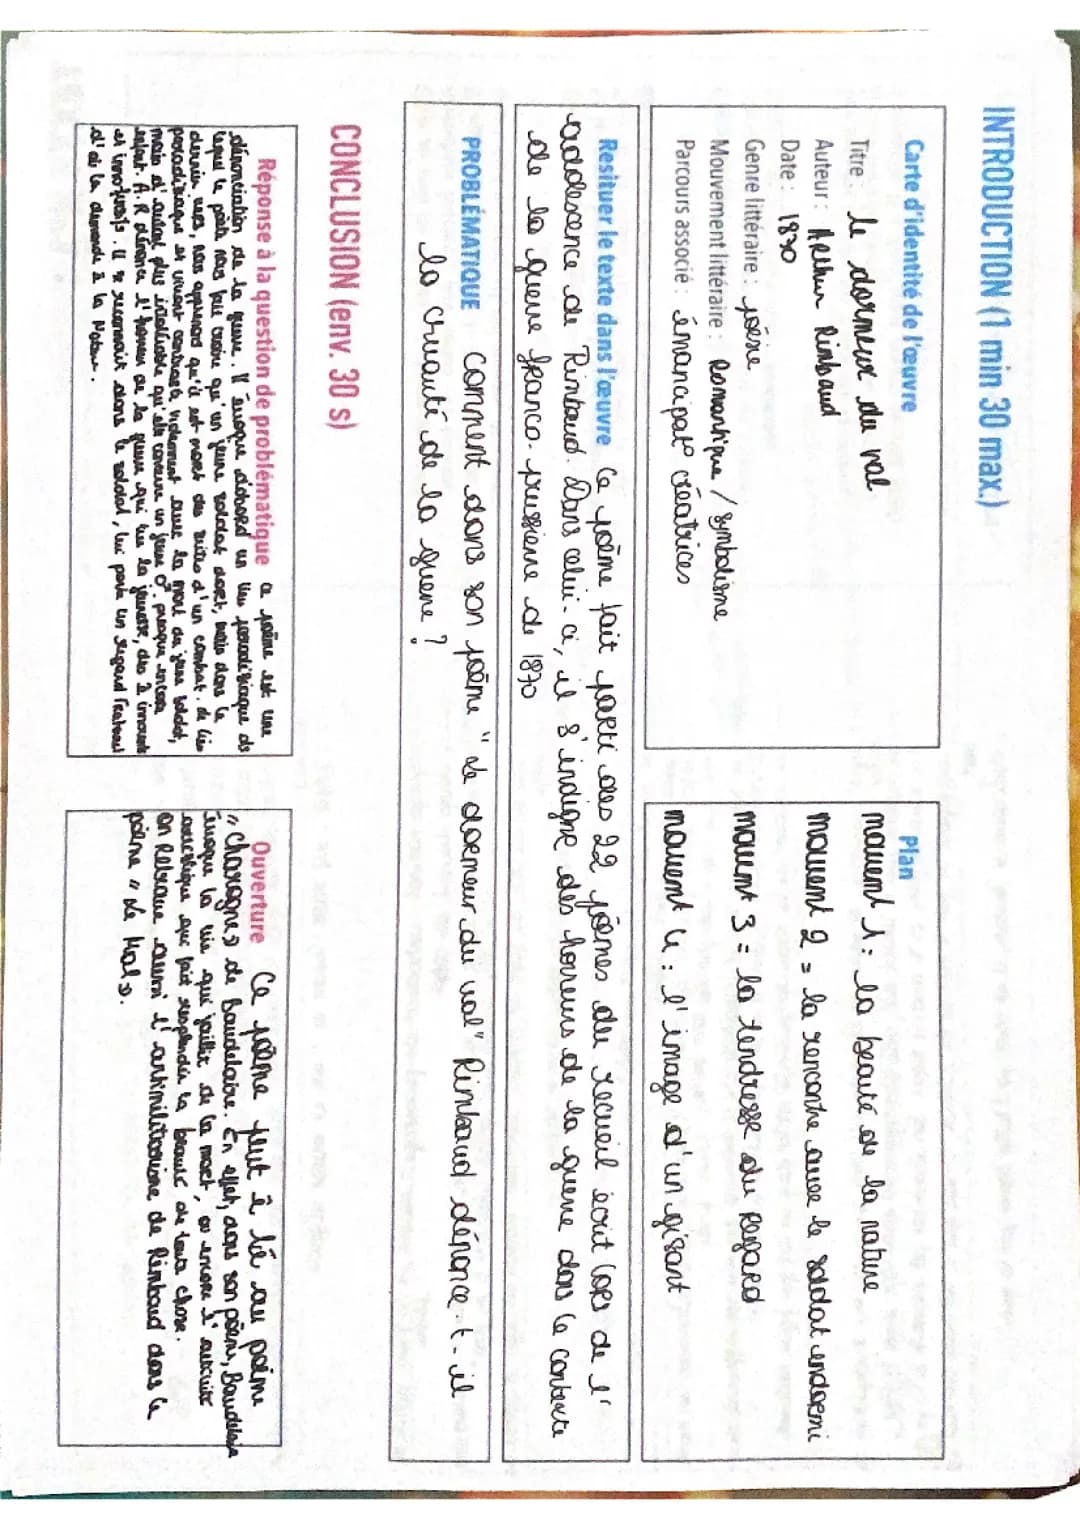 INTRODUCTION (1 min 30 max.)
Carte d'identité de l'œuvre
Titre : le dormeur du val
Auteur : Arthur Rimbaud
Date : 1870
Genre littéraire : poésie
Mouvement littéraire : Romantique / symbolisme
Parcours associé : émancipat° créatrices
Plan
mouvemt 1 : la beauté de la nature
mouvemt 2 = la rencontre avec le soldat endormi
mouvmt 3 = la tendresse du regard
mouvemt 4 : l'image d'un gisant
Resituer le texte dans l'œuvre Ce poème fait parti des 22 poèmes du recueil écrit lors de l'
addesence de Rimbaud. Dans celui-ci, il s'indigne des horreurs de la guerre dans le contexte
de la guerre franco-prussienne de 1870
PROBLÉMATIQUE Comment dans son poème "Le dormeur du val" Rimbaud dénonce-t-il
la cruauté de la guerre ?
CONCLUSION (env. 30 s)
Réponse à la question de problématique ce poème est une
dénonciation de la guerre. Il évoque d'abord un lieu paradisiaque ds
lequel le poète nous fait croire qu'un jeune soldat dort, mais dans le
dernier vers, nous apprenons qu'il est mort des suites d'un combat. Ce lieu
paradisiaque et vivant contraste violemment avec la mort du jeune soldat,
mais d'autant plus qu'elle concerne un jeune presque encore
enfant. A.R dénonce l'horreur de la guerre qui tue la jeunesse, des innocents
et inoffensifs. Il se reconnait dans le soldat, lui porte un regard fraternel
d'où la demande à la Nature.
Ouverture Ce poème peut ê lié au poème
"Charogne" de Baudelaire. En effet, dans son poème, Baudelaire
évoque la vie qui jaillit de la mort, ou encore l'écriture
que fait resplendir la beauté de toute chose.
On Retrouve aussi l'antimilitarisme de Rimbaud dans le
poème "Le Mal".